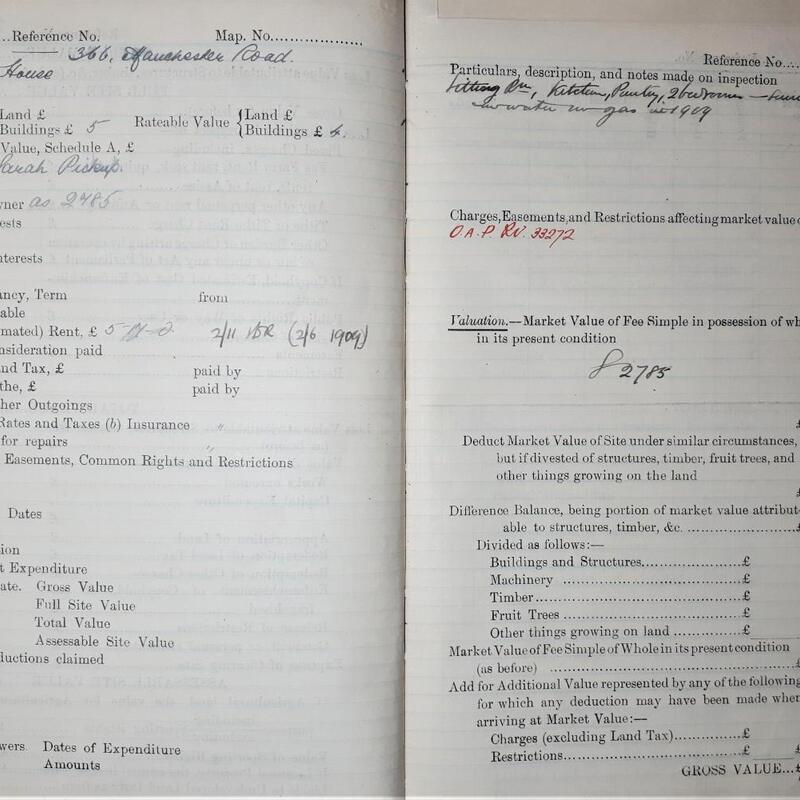 ..Reference No. Map. No....................
366, Manchester Road.
House
Land £ Rateable Value {Land £
Buildings £ 5 Buildings £ 4.
Value, Schedule A, £
Sarah Pickup.
wner as 2785
ests
nterests
ancy, Term from
able
mated) Rent, £ 2/11 (2/6 1909)
nsideration paid
nd Tax, £ paid by
the, £ paid by
her Outgoings
Rates and Taxes (b) Insurance "
for repairs "
Easements, Common Rights and Restrictions
Dates
ion
t Expenditure
ate. Gross Value
Full Site Value
Total Value
Assessable Site Value
ductions claimed
wers. Dates of Expenditure
Amounts
Reference No....
Particulars, description, and notes made on inspection
Sitting Rm, Kitchen, Pantry, 2 bedrooms
no water no gas in 1909
Charges, Easements, and Restrictions affecting market value o
O.A.P. RV. 33272
Valuation.—Market Value of Fee Simple in possession of wh
in its present condition
2785
£
Deduct Market Value of Site under similar circumstances,
but if divested of structures, timber, fruit trees, and
other things growing on the land
£
Difference Balance, being portion of market value attribut-
able to structures, timber, &c. ....................£
Divided as follows:—
Buildings and Structures....................£
Machinery ....................£
Timber....................£
Fruit Trees ....................£
Other things growing on land ..............£
Market Value of Fee Simple of Whole in its present condition
(as before) ....................£
Add for Additional Value represented by any of the following
for which any deduction may have been made when
arriving at Market Value:—
Charges (excluding Land Tax)..............£
Restrictions....................£ £
GROSS VALUE...£